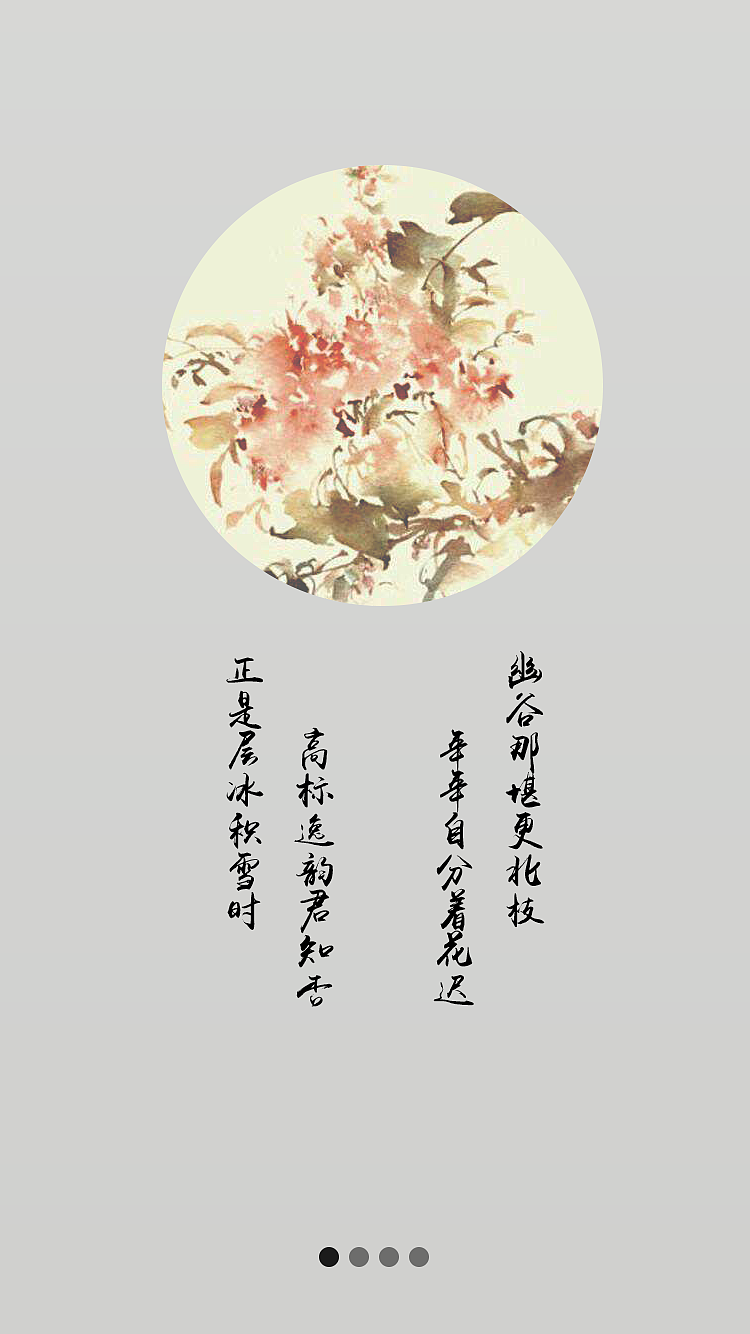 幽谷那堪更北枝
年年自分着花迟
高标逸韵君知否
正是层冰积雪时